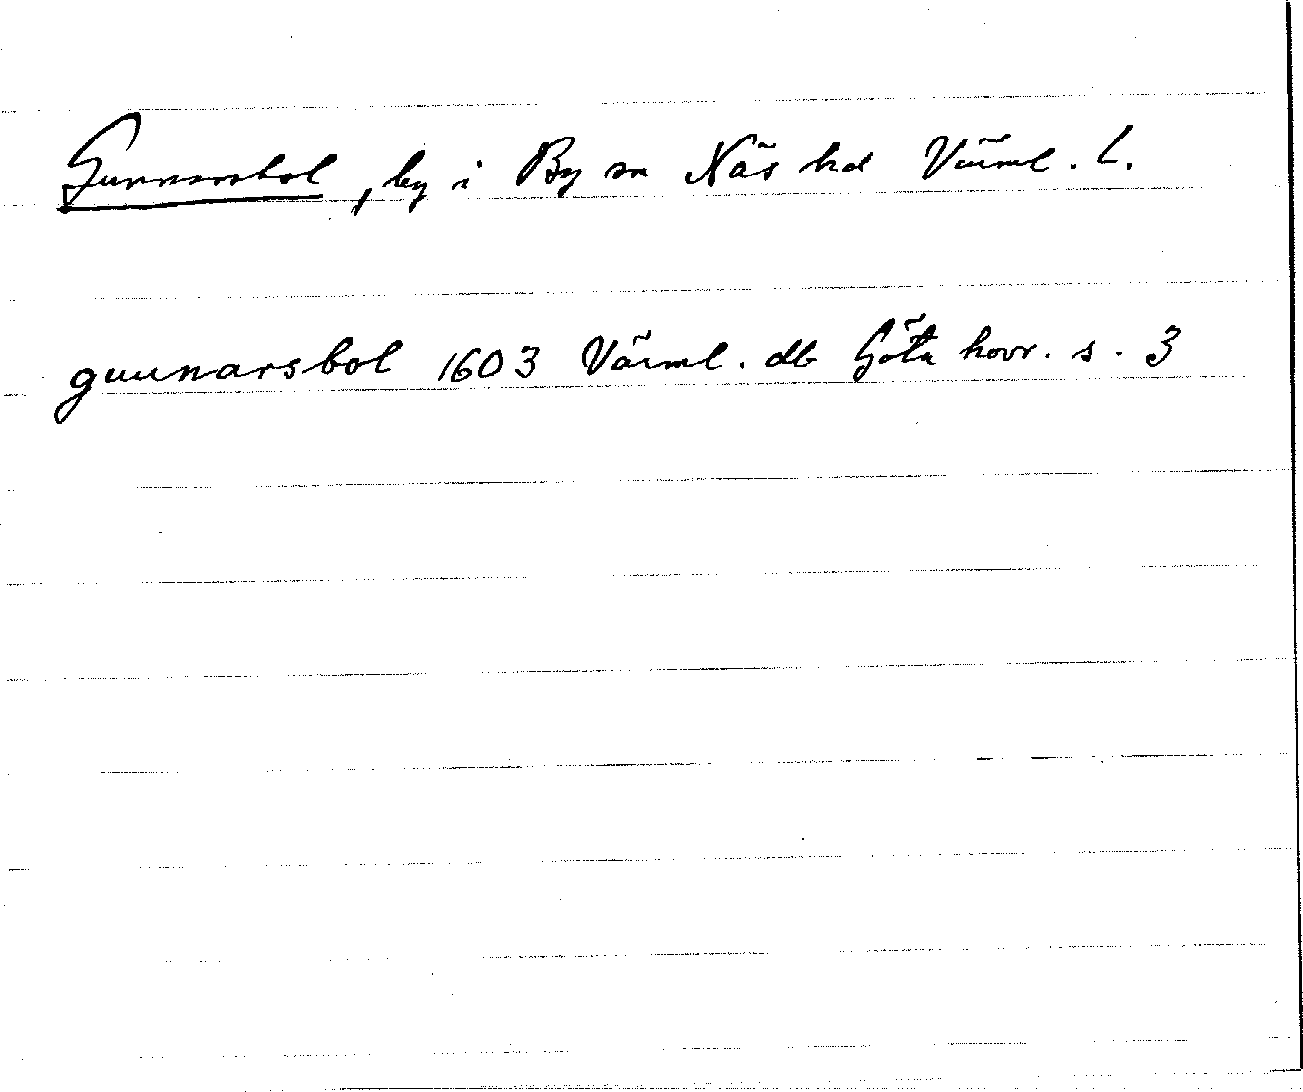 Gunnarsbol, by i By sn Näs hd Värml. l.
gunnarsbol 1603 Värml. db Göta hovr. s. 3